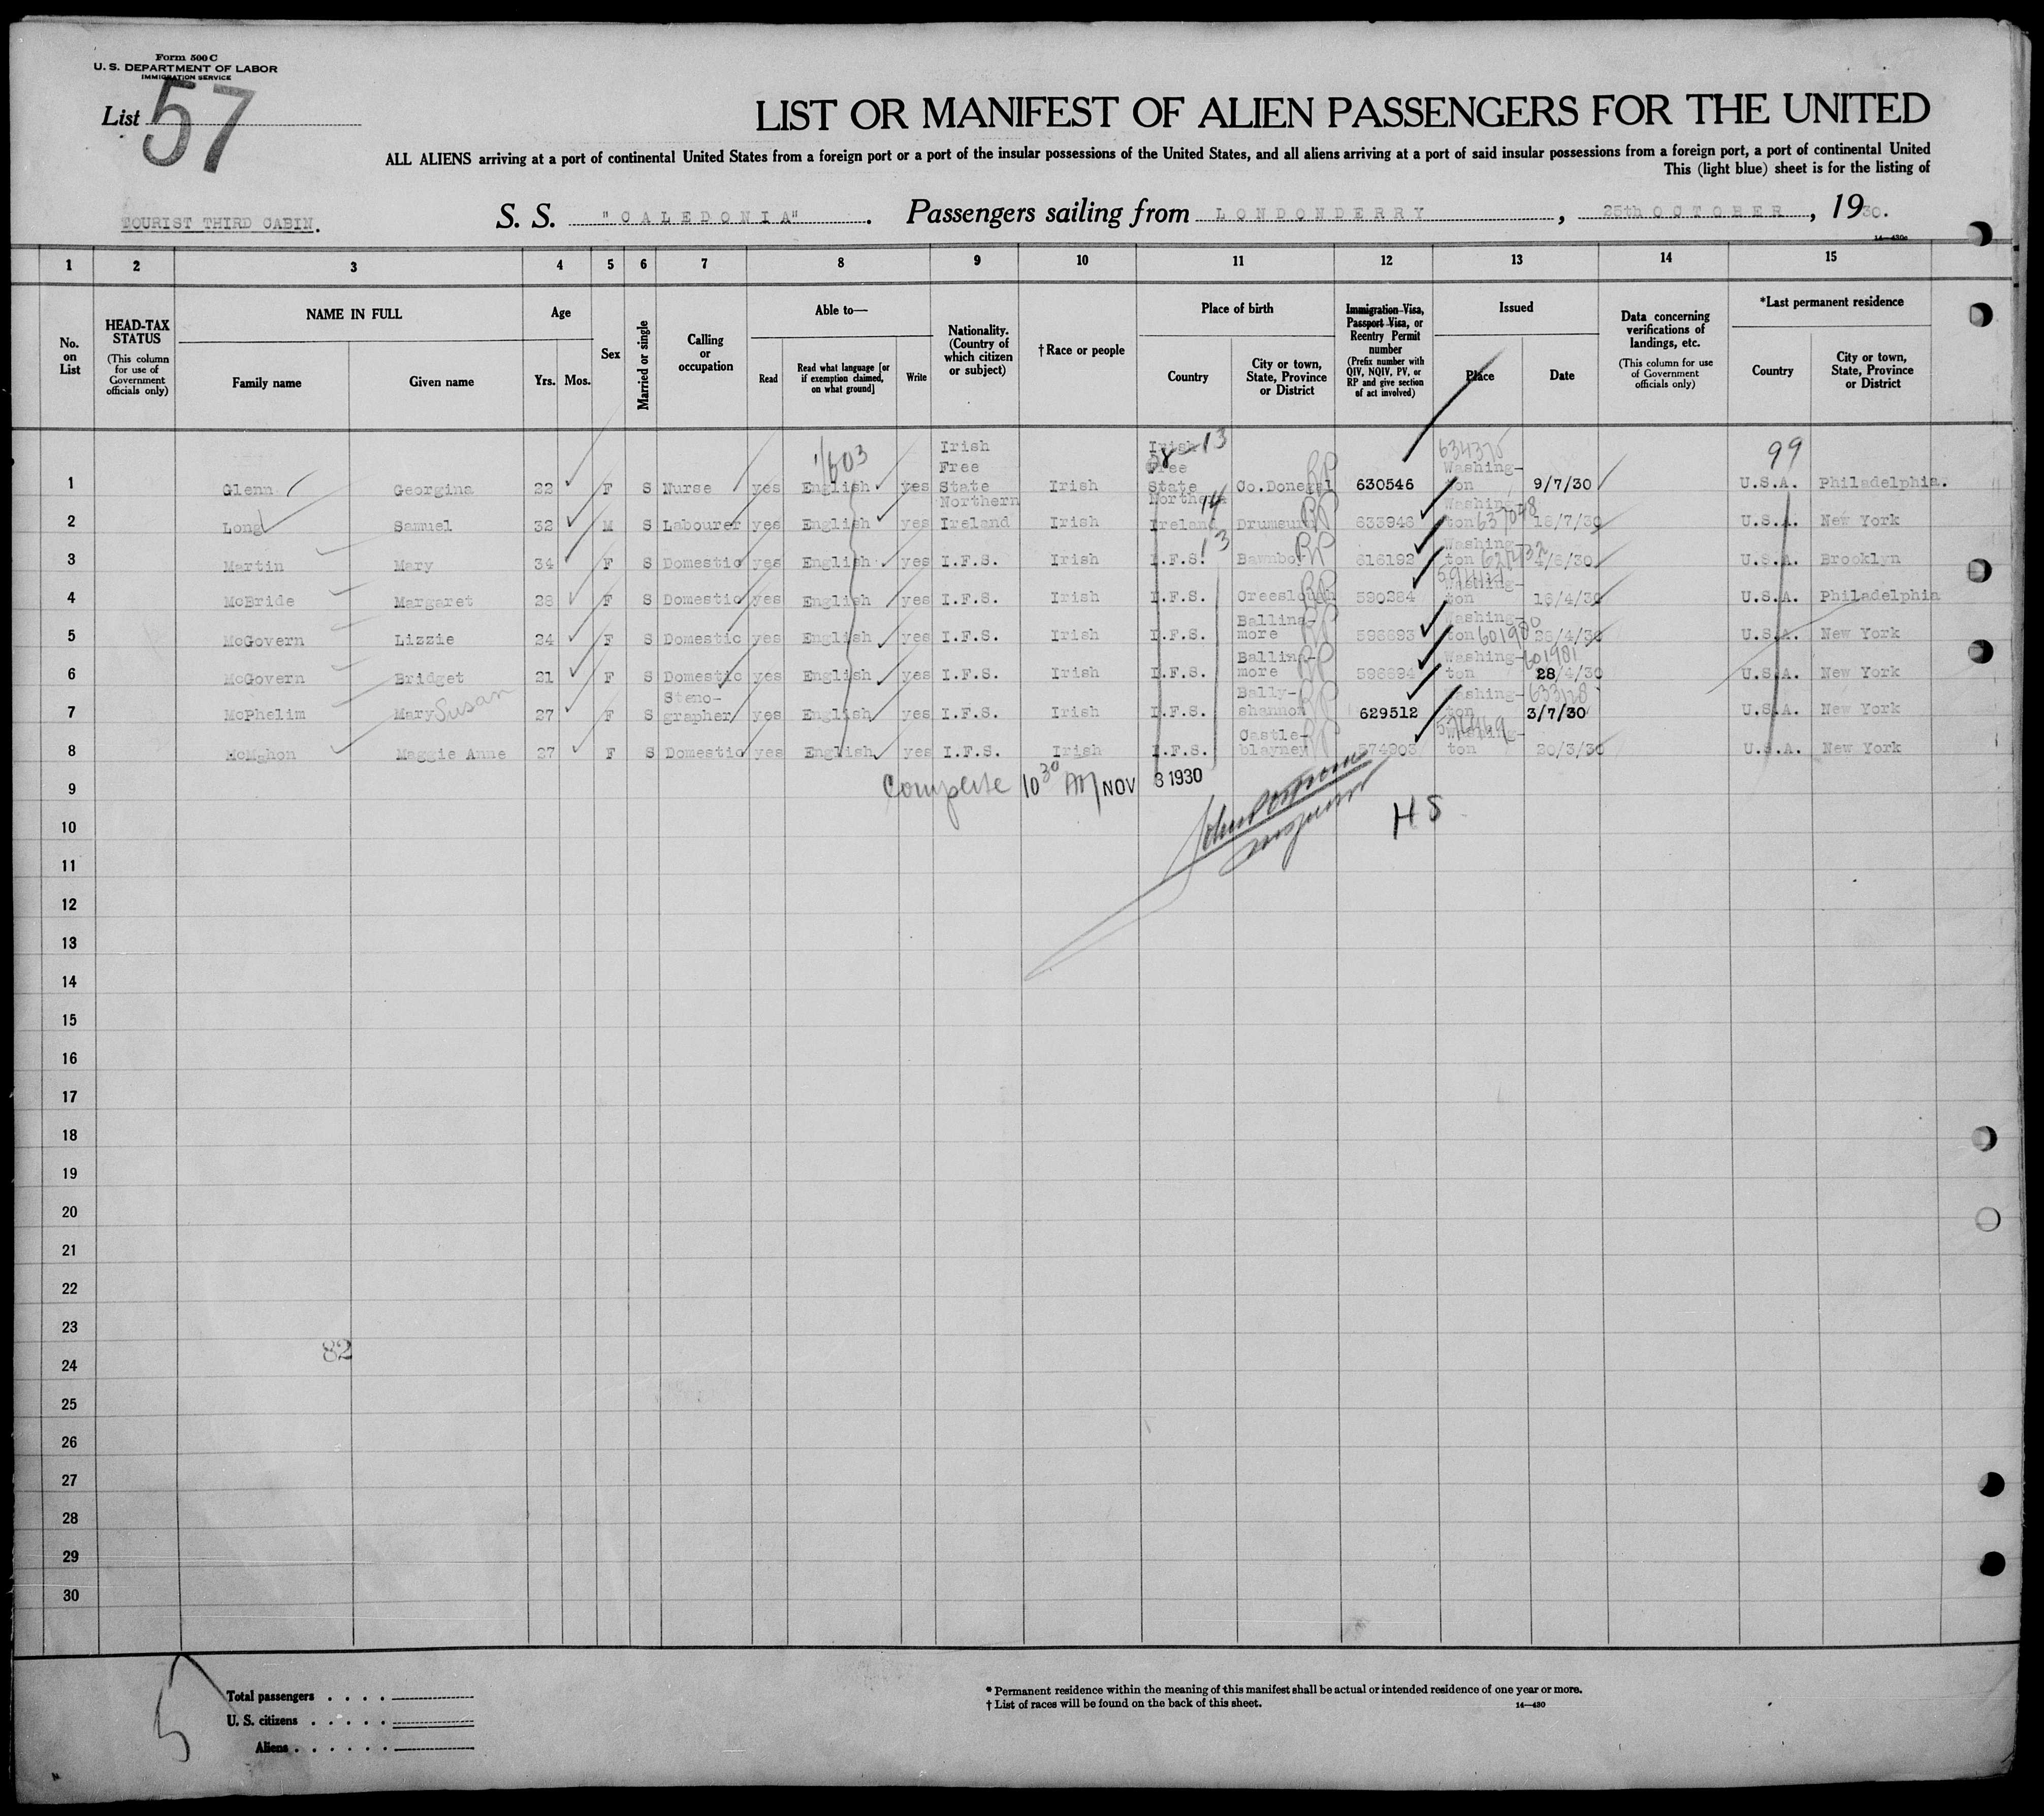 Form 500 C
U. S. DEPARTMENT OF LABOR
IMMIGRATION SERVICE
List 57
LIST OR MANIFEST OF ALIEN PASSENGERS FOR THE UNITED
ALL ALIENS arriving at a port of continental United States from a foreign port or a port of the insular possessions of the United States, and all aliens arriving at a port of said insular possessions from a foreign port, a port of continental United
This (light blue) sheet is for the listing of
TOURIST THIRD CABIN.
S. S. "CALEDONIA". Passengers sailing from LONDONDERRY, 25th OCTOBER, 1930.
14—430c
1 2 3 4 5 6 7 8 9 10 11 12 13 14 15
No. on List
HEAD-TAX STATUS
(This column for use of Government officials only)
NAME IN FULL
Family name
Given name
Age
Yrs. Mos.
Sex
Married or single
Calling or occupation
Able to—
Read
Read what language [or if exemption claimed, on what ground]
Write
Nationality. (Country of which citizen or subject)
† Race or people
Place of birth
Country
City or town, State, Province or District
Immigration Visa, Passport Visa, or Reentry Permit number
(Prefix number with QIV, NQIV, PV, or RP and give section of act involved)
Issued
Place
Date
Data concerning verifications of landings, etc.
(This column for use of Government officials only)
*Last permanent residence
Country
City or town, State, Province or District
1 Glenn Georgina 22 F S Nurse yes English yes Irish Free State Irish Irish Free State 13 Co.Donegal RP 630546 Washing-ton 634375 9/7/30 U.S.A. 99 Philadelphia.
2 Long Samuel 32 M S Labourer yes English yes Northern Ireland Irish Northern Ireland 14 RP 633946 Washing-ton 18/7/30 U.S.A. New York
3 Martin Mary 34 F S Domestic yes English yes I.F.S. Irish I.F.S. 13 Bawnboy RP 616192 Washing-ton 4/6/30 U.S.A. Brooklyn
4 McBride Margaret 28 F S Domestic yes English yes I.F.S. Irish I.F.S. Creeslough RP 590284 Washing-ton 16/4/30 U.S.A. Philadelphia
5 McGovern Lizzie 24 F S Domestic yes English yes I.F.S. Irish I.F.S. Ballina-more RP 596693 Washing-ton 601980 28/4/30 U.S.A. New York
6 McGovern Bridget 21 F S Domestic yes English yes I.F.S. Irish I.F.S. Ballina-more RP 596694 Washing-ton 601981 28/4/30 U.S.A. New York
7 McPhelim Mary Susan 27 F S Steno-grapher yes English yes I.F.S. Irish I.F.S. Bally-shannon RP 629512 Washing-ton 633128 3/7/30 U.S.A. New York
8 McMahon Maggie Anne 27 F S Domestic yes English yes I.F.S. Irish I.F.S. Castle-blayney RP 574903 Washing-ton 20/3/30 U.S.A. New York
9 Complete 10 30 AM NOV 3 1930
10 HS
11
12
13
14
15
16
17
18
19
20
21
22
23
82
24
25
26
27
28
29
30
Total passengers . . . .
U. S. citizens . . . . .
Aliens . . . . . .
* Permanent residence within the meaning of this manifest shall be actual or intended residence of one year or more.
† List of races will be found on the back of this sheet.
14—430